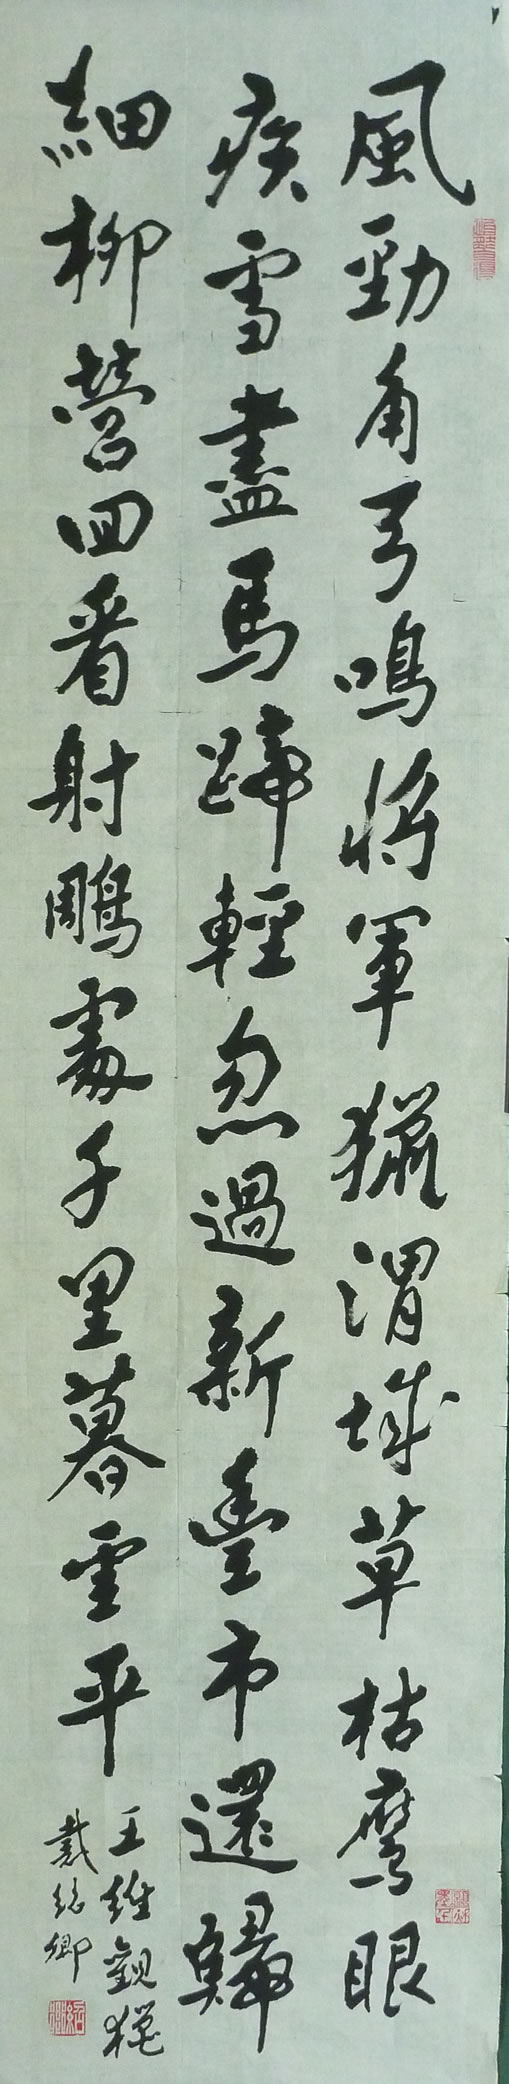 風勁角弓鳴將軍獵渭城草枯鹰眼
疾雪盡馬蹄輕忽過新豐市還歸
細柳營回看射鵰處千里暮雲平
王維觀獵
戴紹卿